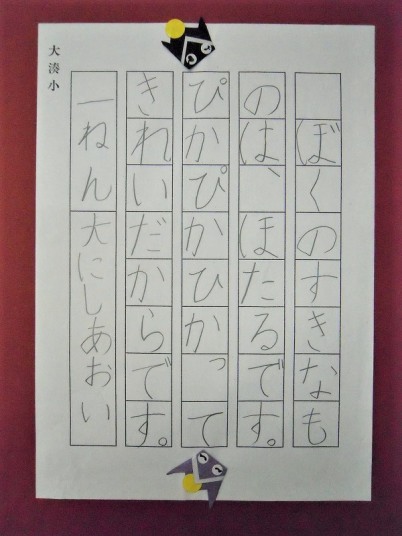 ぼくのすきなも
のは、ほたるです。
ぴかぴかひかって
きれいだからです。
一ねん 大にしあおい
大湊小